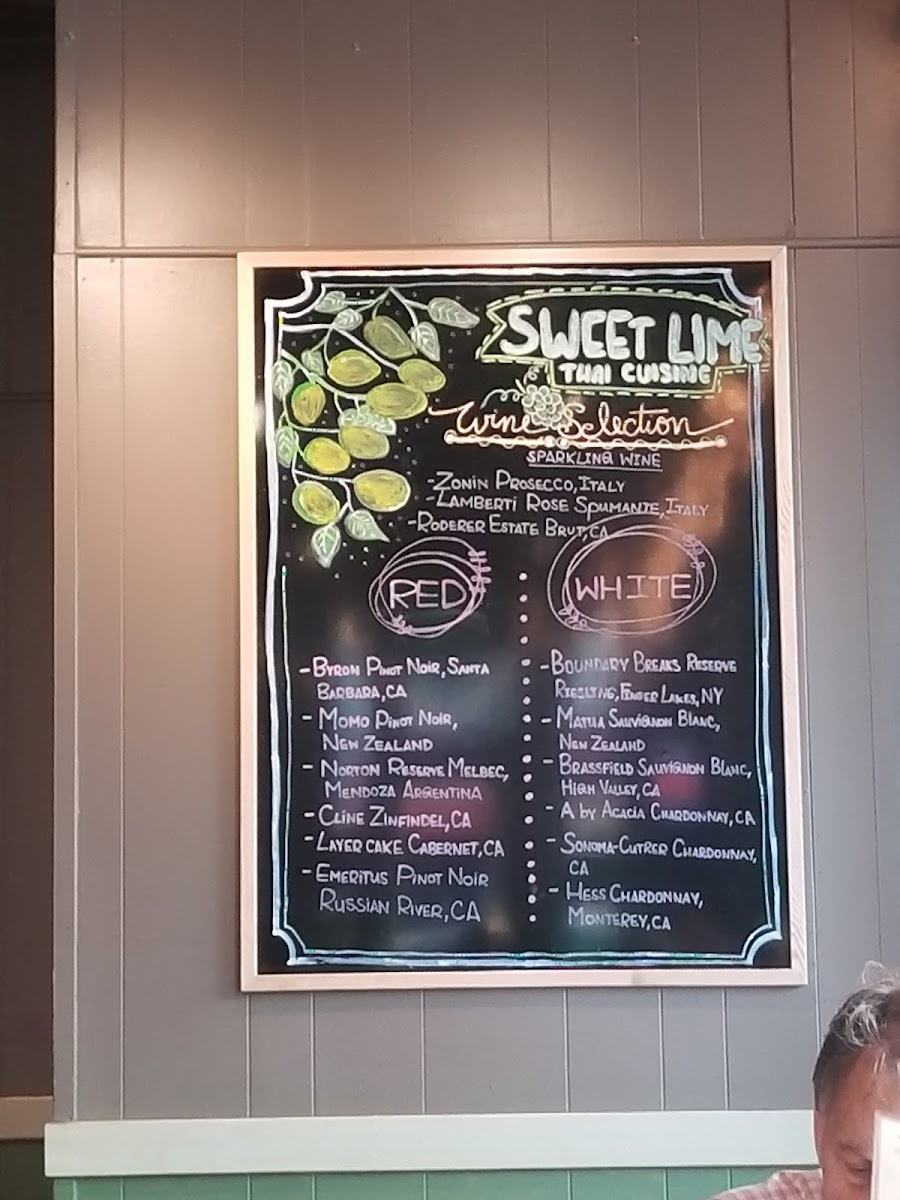 SWEET LIME
THAI CUISINE
Wine Selection
SPARKLING WINE
-ZONIN PROSECCO, ITALY
-LAMBERTI ROSE SPUMANTE, ITALY
-RODERER ESTATE BRUT, CA
RED
-BYRON PINOT NOIR, SANTA
BARBARA, CA
- MOMO PINOT NOIR,
NEW ZEALAND
- NORTON RESERVE MELBEC,
MENDOZA ARGENTINA
- CLINE ZINFINDEL, CA
- LAYER CAKE CABERNET, CA
- EMERITUS PINOT NOIR
RUSSIAN RIVER, CA
WHITE
-BOUNDARY BREAKS RESERVE
RIESLING, FINGER LAKES, NY
- MATUA SAUVIGNON BLANC,
NEW ZEALAND
- BRASSFIELD SAUVIGNON BLANC,
HIGH VALLEY, CA
- A by ACACIA CHARDONNAY, CA
- SONOMA-CUTRER CHARDONNAY,
CA
- HESS CHARDONNAY,
MONTEREY, CA